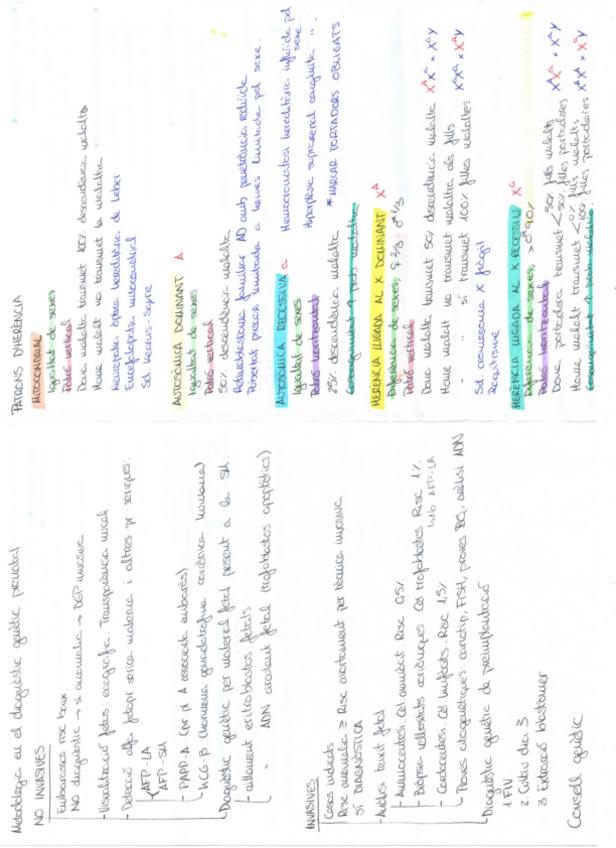 Metodologia en el diagnòstic genètic prenatal
NO INVASIVES
Embarassos risc baix
NO diagnòstic → si anomalia → DGP invasiva
- Visualització fetus: ecografia. Transparència nucal.
- Detecció alfa fetopr sèrica materna i altres pr sèriques:
AFP-LA
AFP-SM
- PAPP-A (pr pl A associada embaràs)
- HCG-β (hormona gonadotrofina coriònica humana)
Diagnòstic genètic per material fetal present a la SM:
- aïllament eritroblastos fetals
- " ADN circulant fetal (trofoblastos apoptòtics)
INVASIVES
Casos indicats
Risc anomalia ≥ Risc avortament per tècnica invasiva
SÍ DIAGNÒSTICA
- Anàlisi teixit fetal
- Amniocentesi. Cèl amniòt. Risc 0,5%
- Biòpsia vellositats coriòniques. Cèl trofoblastos. Risc 1%.
AFP-LA
- Cordocentesi. Cèl limfocits. Risc 1,5%
Proves citogenètiques: cariotip, FISH, proves BQ, anàlisi ADN
Diagnòstic genètic de preimplantació
1. FIV
2. Cultiu dia 3
3. Extracció blastòmer
Consell genètic
PATRONS D'HERÈNCIA
MITOCONDRIAL
Igualtat de sexes
Patró vertical
Dona malalta transmet 100% descendència malalta
Home malalt no transmet la malaltia
Neuropatia òptica hereditària de Leber
Encefalopatia mitocondrial
Sd Kearns-Sayre
AUTOSÒMICA DOMINANT A
Igualtat de sexes
Patró vertical
50% descendència malalta
Retinoblastoma familiar AD amb penetrància reduïda
Pubertat precoç limitada a homes limitada pel sexe.
AUTOSÒMICA RECESSIVA a
Igualtat de sexes
Patró horitzontal
25% descendència malalta
Consanguinitat ↑ prob. malaltia
Hemocromatosi hereditària influïda pel sexe
Hiperplàsia suprarenal congènita " "
* MARCAR PORTADORS OBLIGATS
HERÈNCIA LLIGADA AL X DOMINANT Xᴬ
Diferència de sexes; ♀ 2/3 ♂ 1/3
Patró vertical
Dona malalta transmet 50% descendència malalta XᴬXᵃ × XᵃY
Home malalt no transmet malaltia als fills XᵃXᵃ × XᴬY
" " sí transmet 100% filles malaltes
Sd cromosoma X fràgil
Raquitisme
HERÈNCIA LLIGADA AL X RECESSIU Xᵃ
Diferència de sexes; > ♂ 90%
Patró horitzontal
Dona portadora transmet < 50% fills malalts XᴬXᵃ × XᴬY
50% filles portadores
Home malalt transmet < 0% fills malalts XᴬXᴬ × XᵃY
100% filles portadores
Consanguinitat ↑ prob malaltia